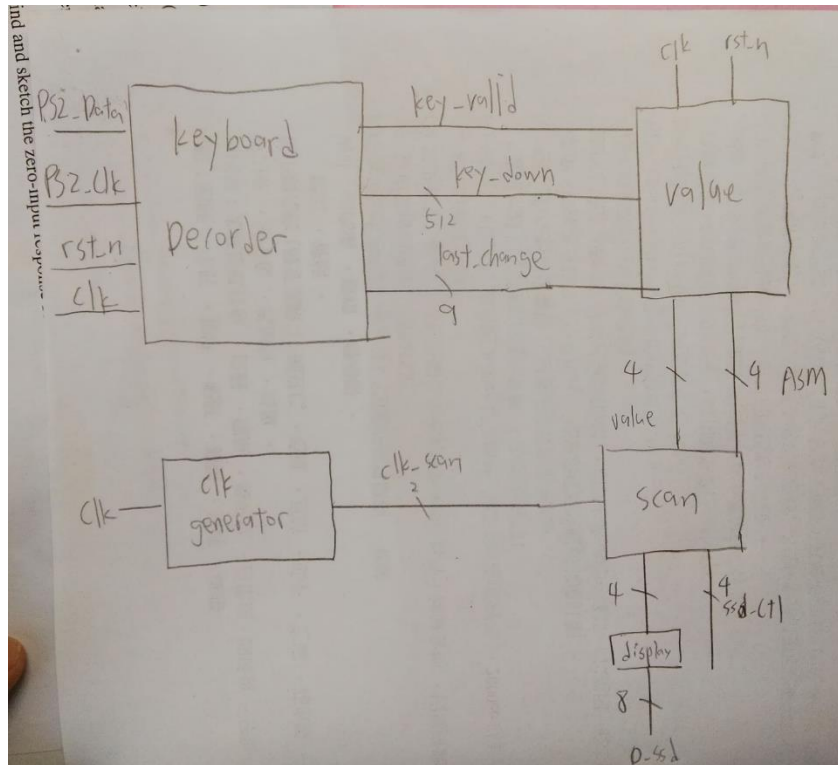 ind and sketch the zero-input
clk rst_n
PS2_Data
PS2_Clk
rst_n
clk
keyboard
Decorder
key_valid
key_down
512
last_change
9
value
4
value
4 ASM
clk
clk
generator
clk_scan
2
scan
4
4
ssd_ctl
display
8
D_ssd